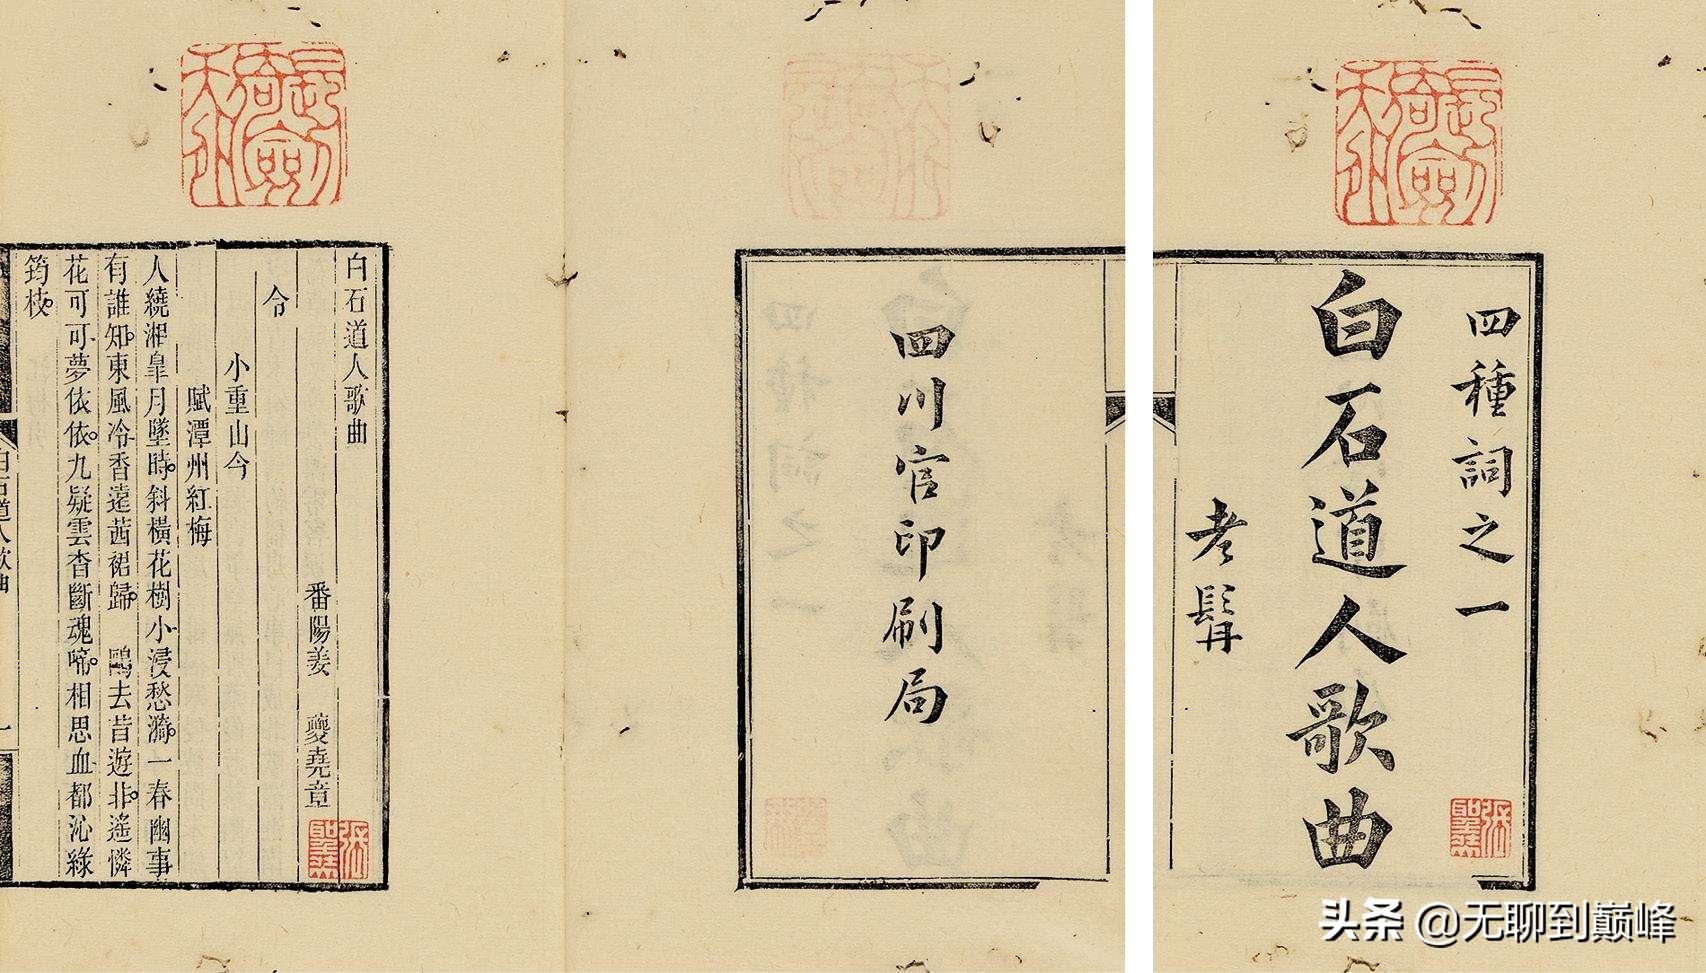 四種詞之一
白石道人歌曲
老髯
四川官印刷局
白石道人歌曲
番陽姜 夔堯章
令
小重山令
賦潭州紅梅
人繞湘皐月墜時。斜橫花樹小、浸愁漪。一春幽事
有誰知。東風冷、香遠茜裙歸。 鷗去昔遊非。遙憐
花可可、夢依依。九疑雲杳斷魂啼。相思血、都沁綠
筠枝。
白石道人歌曲
一
头条 @无聊到巅峰